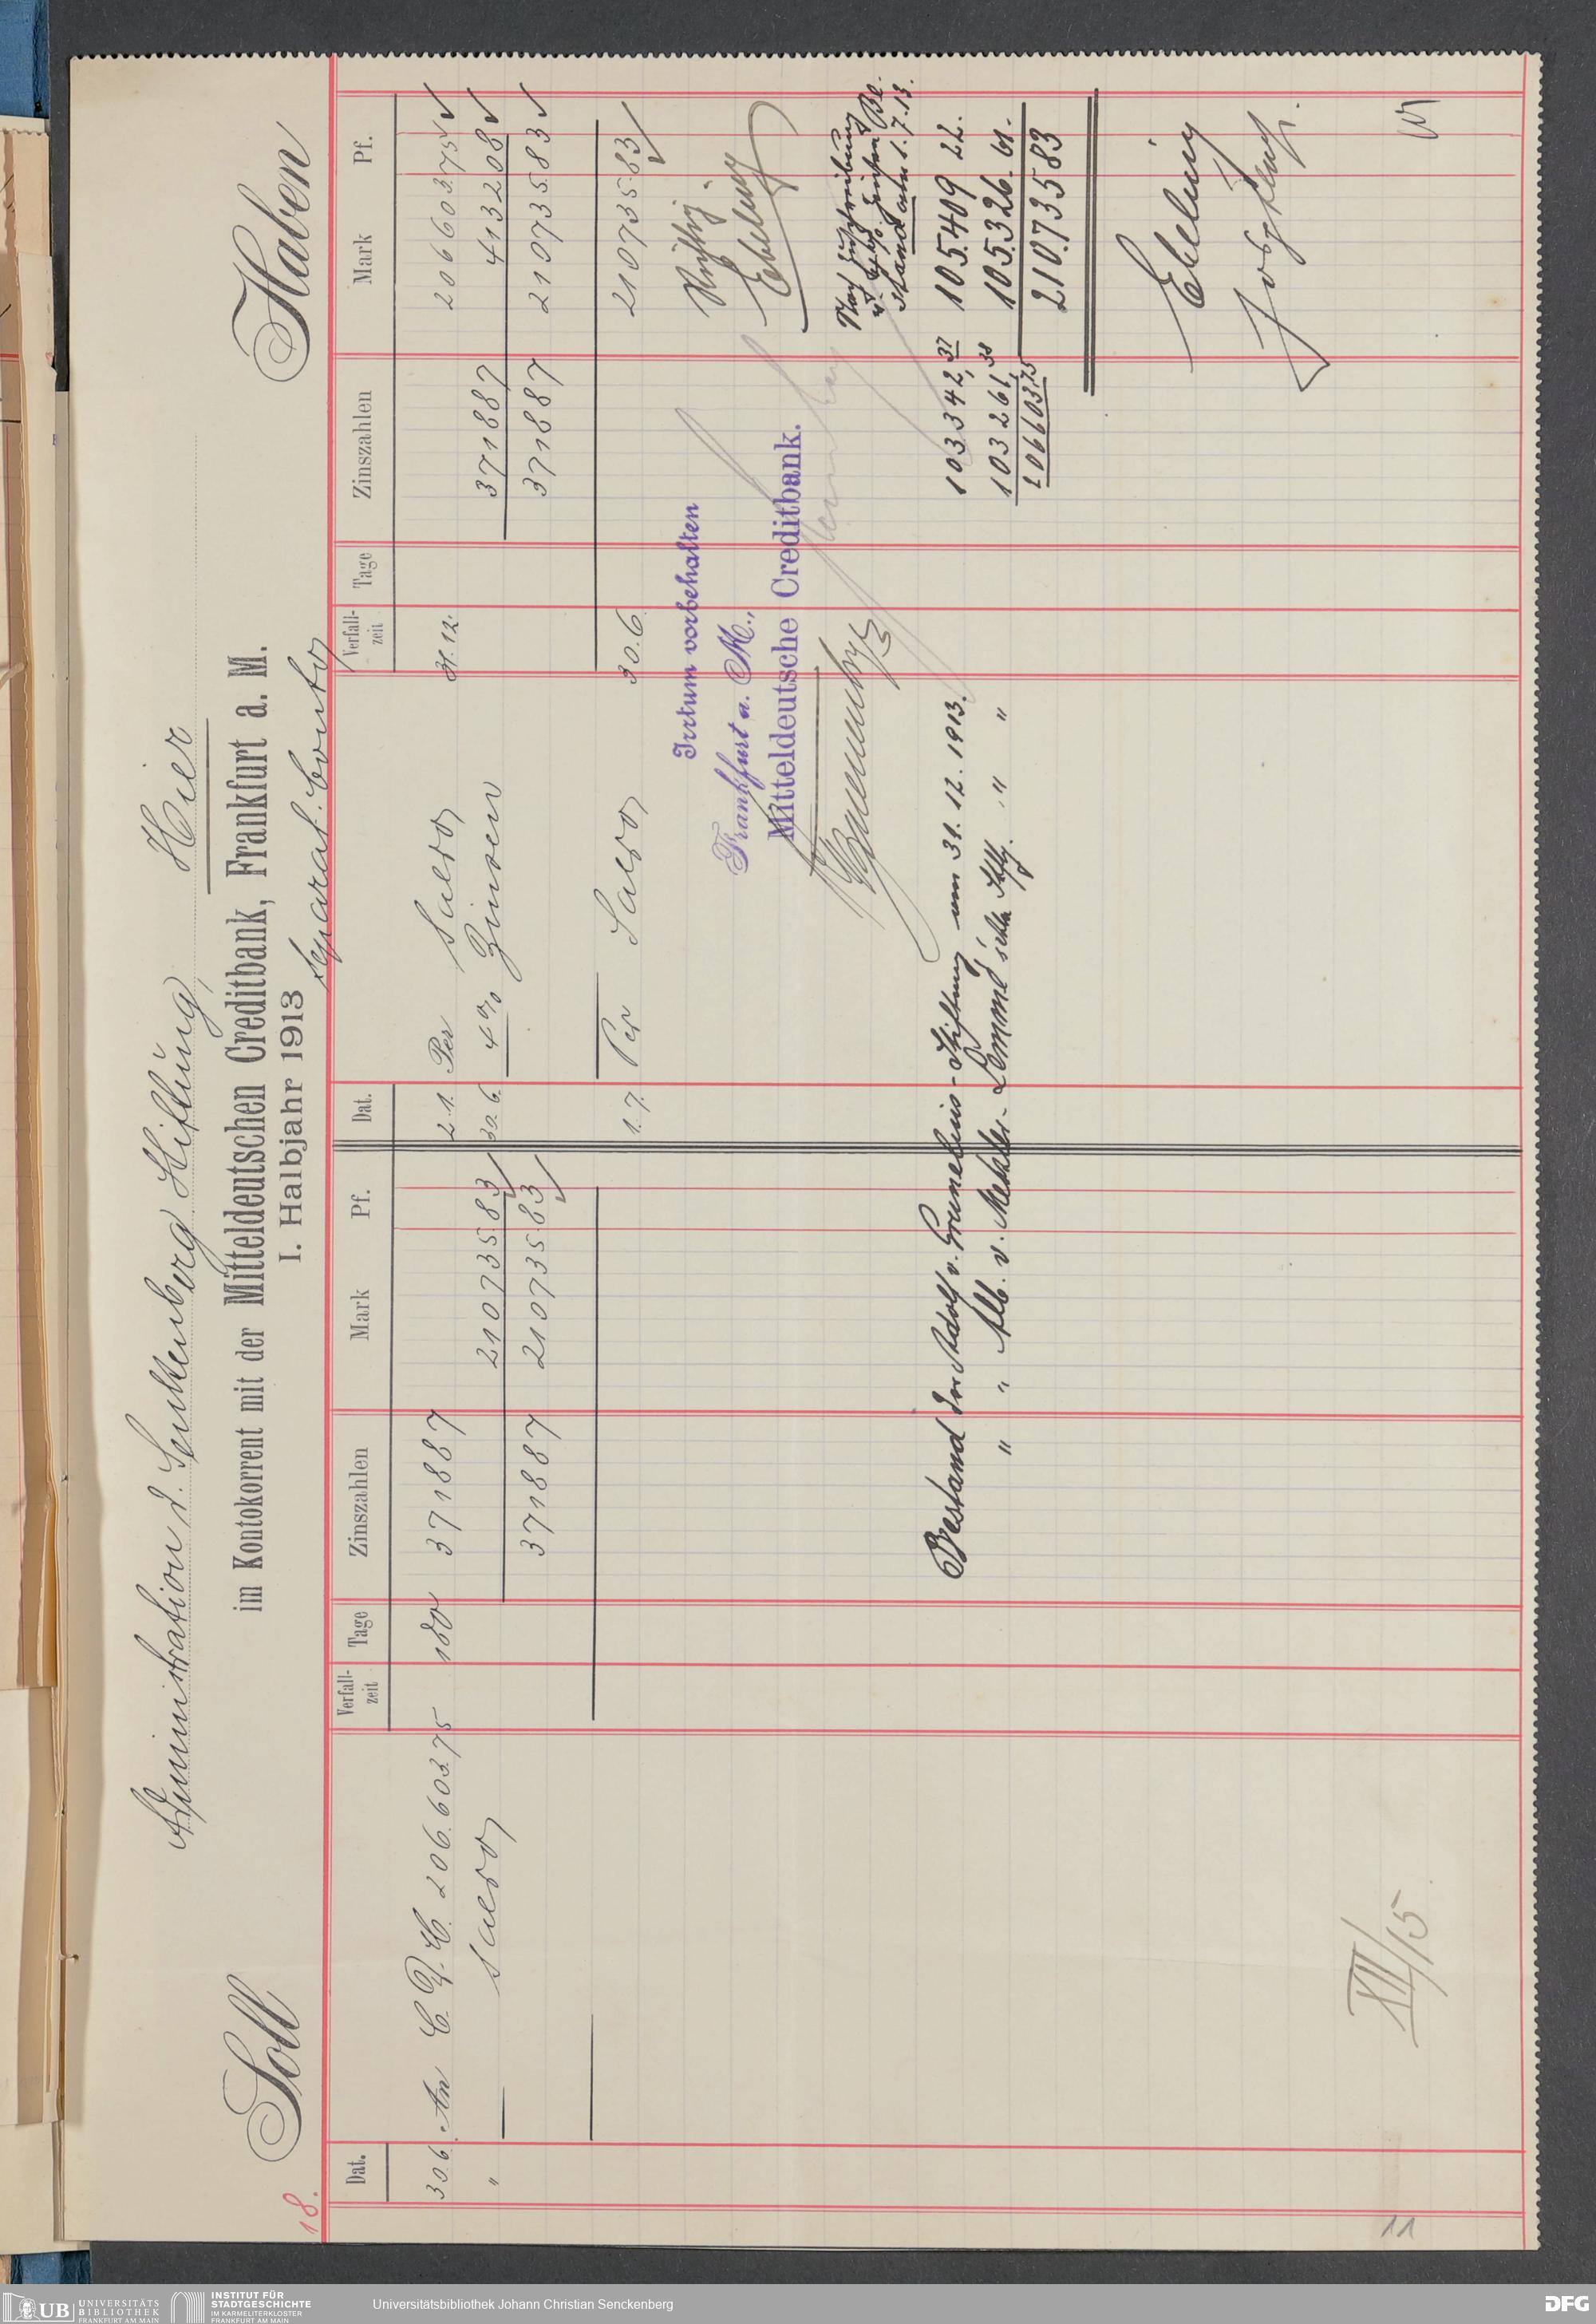 Administration d. Senckenberg Stiftung, Hier
Soll
im Kontokorrent mit der Mitteldeutschen Creditbank, Frankfurt a. M.
Haben
18.
I. Halbjahr 1913
Separat-Conto
Dat. Verfall-zeit Tage Zinszahlen Mark Pf. Dat. Verfall-zeit Tage Zinszahlen Mark Pf.
30.6. An 206.603.75 180 371887
2.1. Per Saldo 31.12. 206603.75
" Saldo 210735.83
30.6. 4% Zinsen 371887 4132.08
371887 210735.83
371887 210735.83
1.7. Per Saldo 30.6. 210735.83
Irrtum vorbehalten
Frankfurt a. M.,
Mitteldeutsche Creditbank.
Richtig.
Ebeling
Nach Zuschreibung
stand am 1.7.13.
Bestand der Adolf v. Grunelius-Stiftung am 31.12.1913. 103342,37 105.409 22.
" " Alb. v. Metzler- " " 103261,38 105.326. 61.
206603,75 210.735 83
Ebeling
XII/15
11
UB UNIVERSITÄTS
BIBLIOTHEK
FRANKFURT AM MAIN
INSTITUT FÜR
STADTGESCHICHTE
IM KARMELITERKLOSTER
FRANKFURT AM MAIN
Universitätsbibliothek Johann Christian Senckenberg
DFG